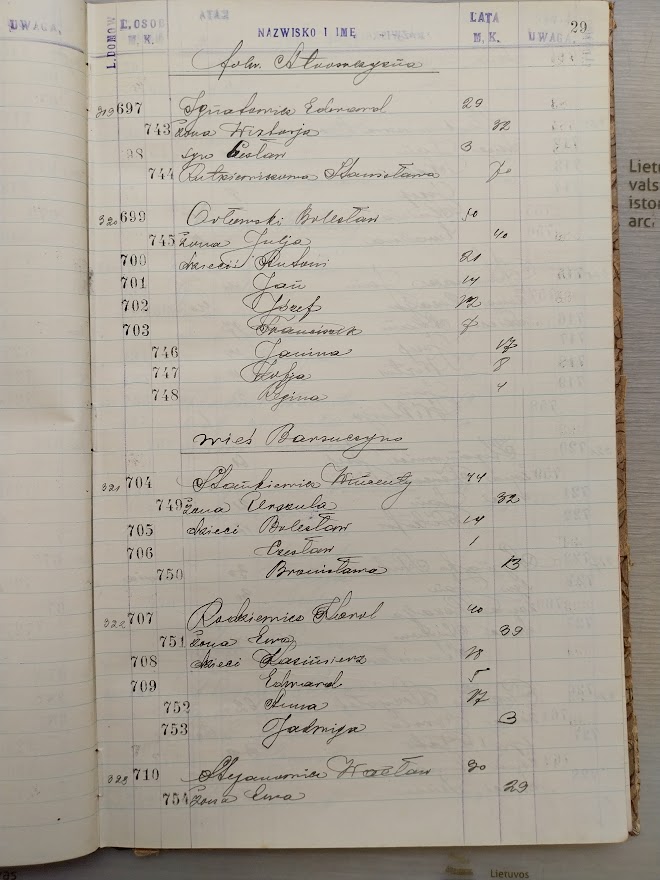 UWAGA.
L.DOMÓW L.OSOB M. K. NAZWISKO I IMĘ LATA M. K. UWAGA. 29
folw.
319 697 Ignatowicz Edward 29
743 żona Wiktorja 32
98 syn Czesław 3
744 Stanisława 70
320 699 Orłowski Bolesław 50
745 żona Julja 40
700 dzieci: Antoni 21
701 Jan 14
702 Józef 12
703 Franciszek 7
746 Janina 17
747 Zofja 8
748 Regina 4
wieś Barsuczyno
321 704 Stankiewicz Wincenty 44
749 żona Urszula 32
705 dzieci Bolesław 14
706 Czesław 1
750 Bronisława 13
322 707 Rodziewicz Karol 40
751 żona Ewa 39
708 dzieci Kazimierz 18
709 Edward 5
752 Anna 17
753 Jadwiga 3
323 710 Stefanowicz Wacław 30
754 żona Ewa 29
Lietu
vals
istor
arc
Lietuvos